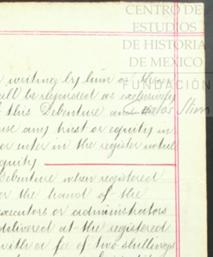 CENTRO DE
ESTUDIOS
DE HISTORIA
DE MEXICO
FUNDACIÓN
Carlos Slim
writing by him or the
all be regarded as exclusively
f this Debenture and the
use any trust or equity in
or enter in the register notice
equity.
Debenture when registered
or the hand of the
executors or administrators
delivered at the registered
with a fee of two shillings